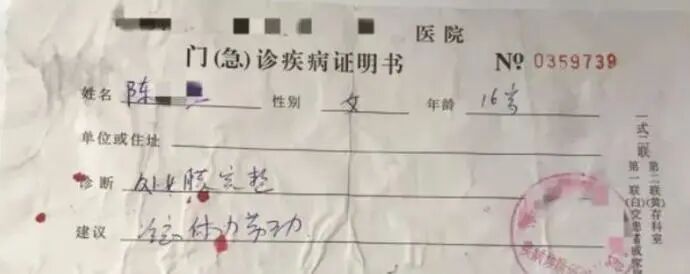 医院
门(急)诊疾病证明书 № 0359739
姓名 陈 性别 女 年龄 16岁
单位或住址
诊断 处女膜完整
建议 体力劳动
一式二联 第一联(白)交患者或家属
第二联(黄)存科室